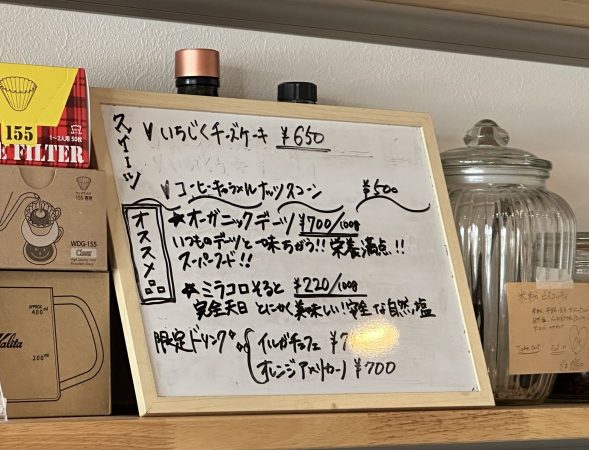 155
E FILTER
1~2人用 50枚
155
WDG-155
Clear
APPROX.
400ml
200ml
Kalita
スイーツ
いちじくチーズケーキ ¥650
コーヒーキャラメルナッツスコーン ¥500
オススメ品
★オーガニックデーツ ¥700/100g
いつものデーツと一味ちがう!! 栄養満点!!
スーパーフード!!
★ミラコロそると ¥220/100g
完全天日 とにかく美味しい!安全な自然塩
限定ドリンク
イルガチェフェ ¥7
オレンジアメリカーノ ¥700
Take out
Eat in